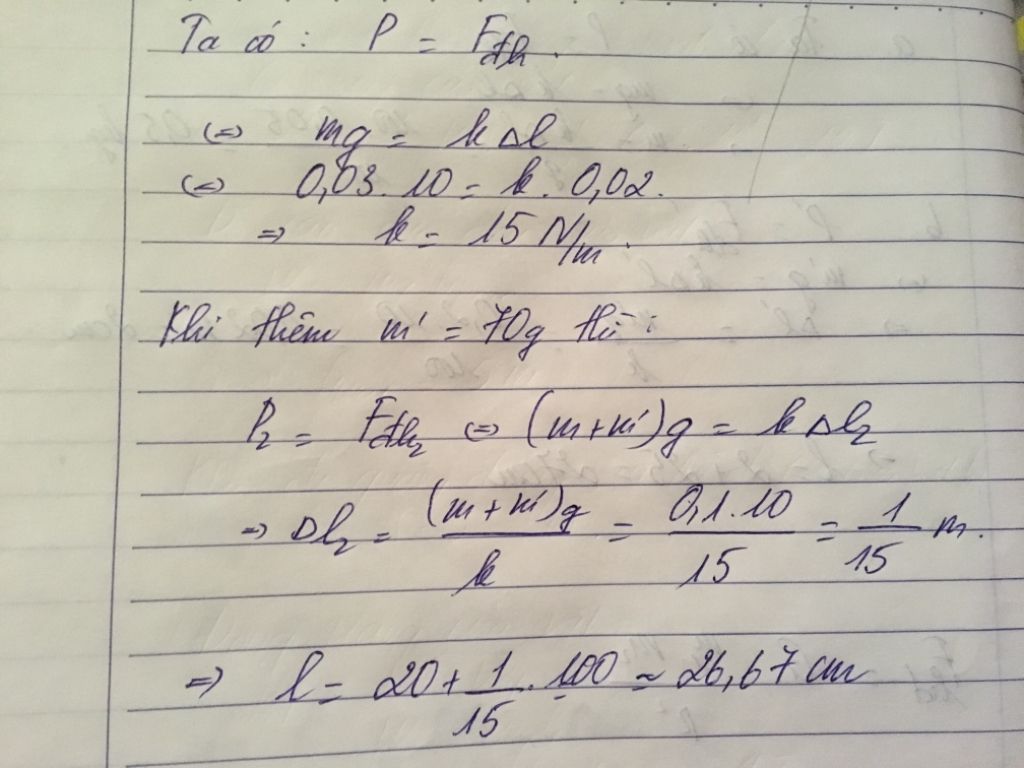 Ta có : P = Fđh.
<=> mg = k Δl
<=> 0,03. 10 = k. 0,02.
=> k = 15 N/m.
Khi thêm m' = 70g thì :
P₂ = Fđh₂ <=> (m+m')g = k Δl₂
=> Δl₂ = (m+m')g / k = 0,1. 10 / 15 = 1 / 15 m.
=> l = 20 + 1 / 15 . 100 ≈ 26,67 cm